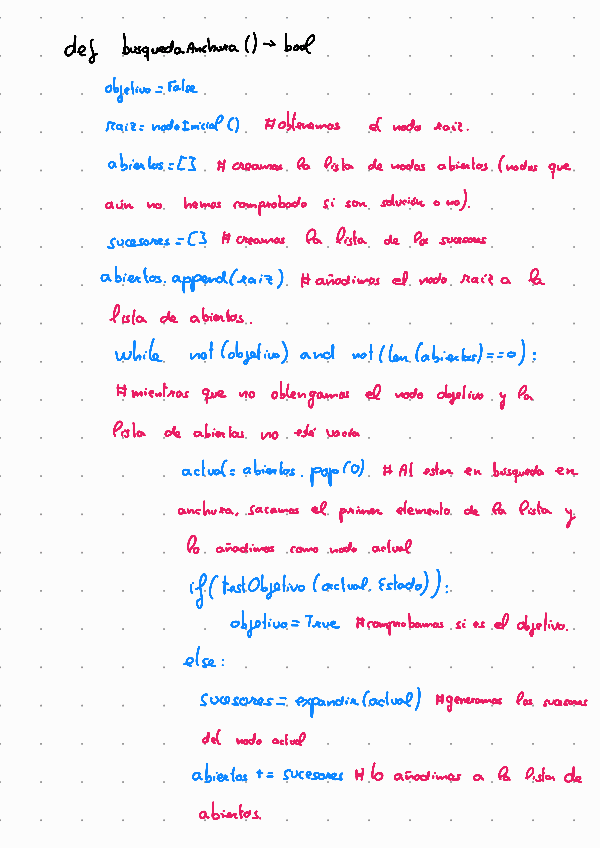 def busquedaAnchura () → bool
objetivo = False
raiz = nodoInicial () #obtenemos el nodo raiz.
abiertos = [] # creamos la lista de nodos abiertos (nodos que
aún no hemos comprobado si son solución o no).
sucesores = [] # creamos la lista de los sucesores
abiertos.append(raiz) #añadimos el nodo raíz a la
lista de abiertos.
while not (objetivo) and not (len (abiertos) == 0) :
#mientras que no obtengamos el nodo objetivo y la
lista de abiertos no esté vacía
actual = abiertos.pop(0) # Al estar en búsqueda en
anchura, sacamos el primer elemento de la lista y
lo añadimos como nodo actual
if (testObjetivo (actual.Estado)) :
objetivo = True #comprobamos si es el objetivo.
else :
sucesores = expandir (actual) #generamos los sucesores
del nodo actual
abiertos += sucesores # lo añadimos a la lista de
abiertos.